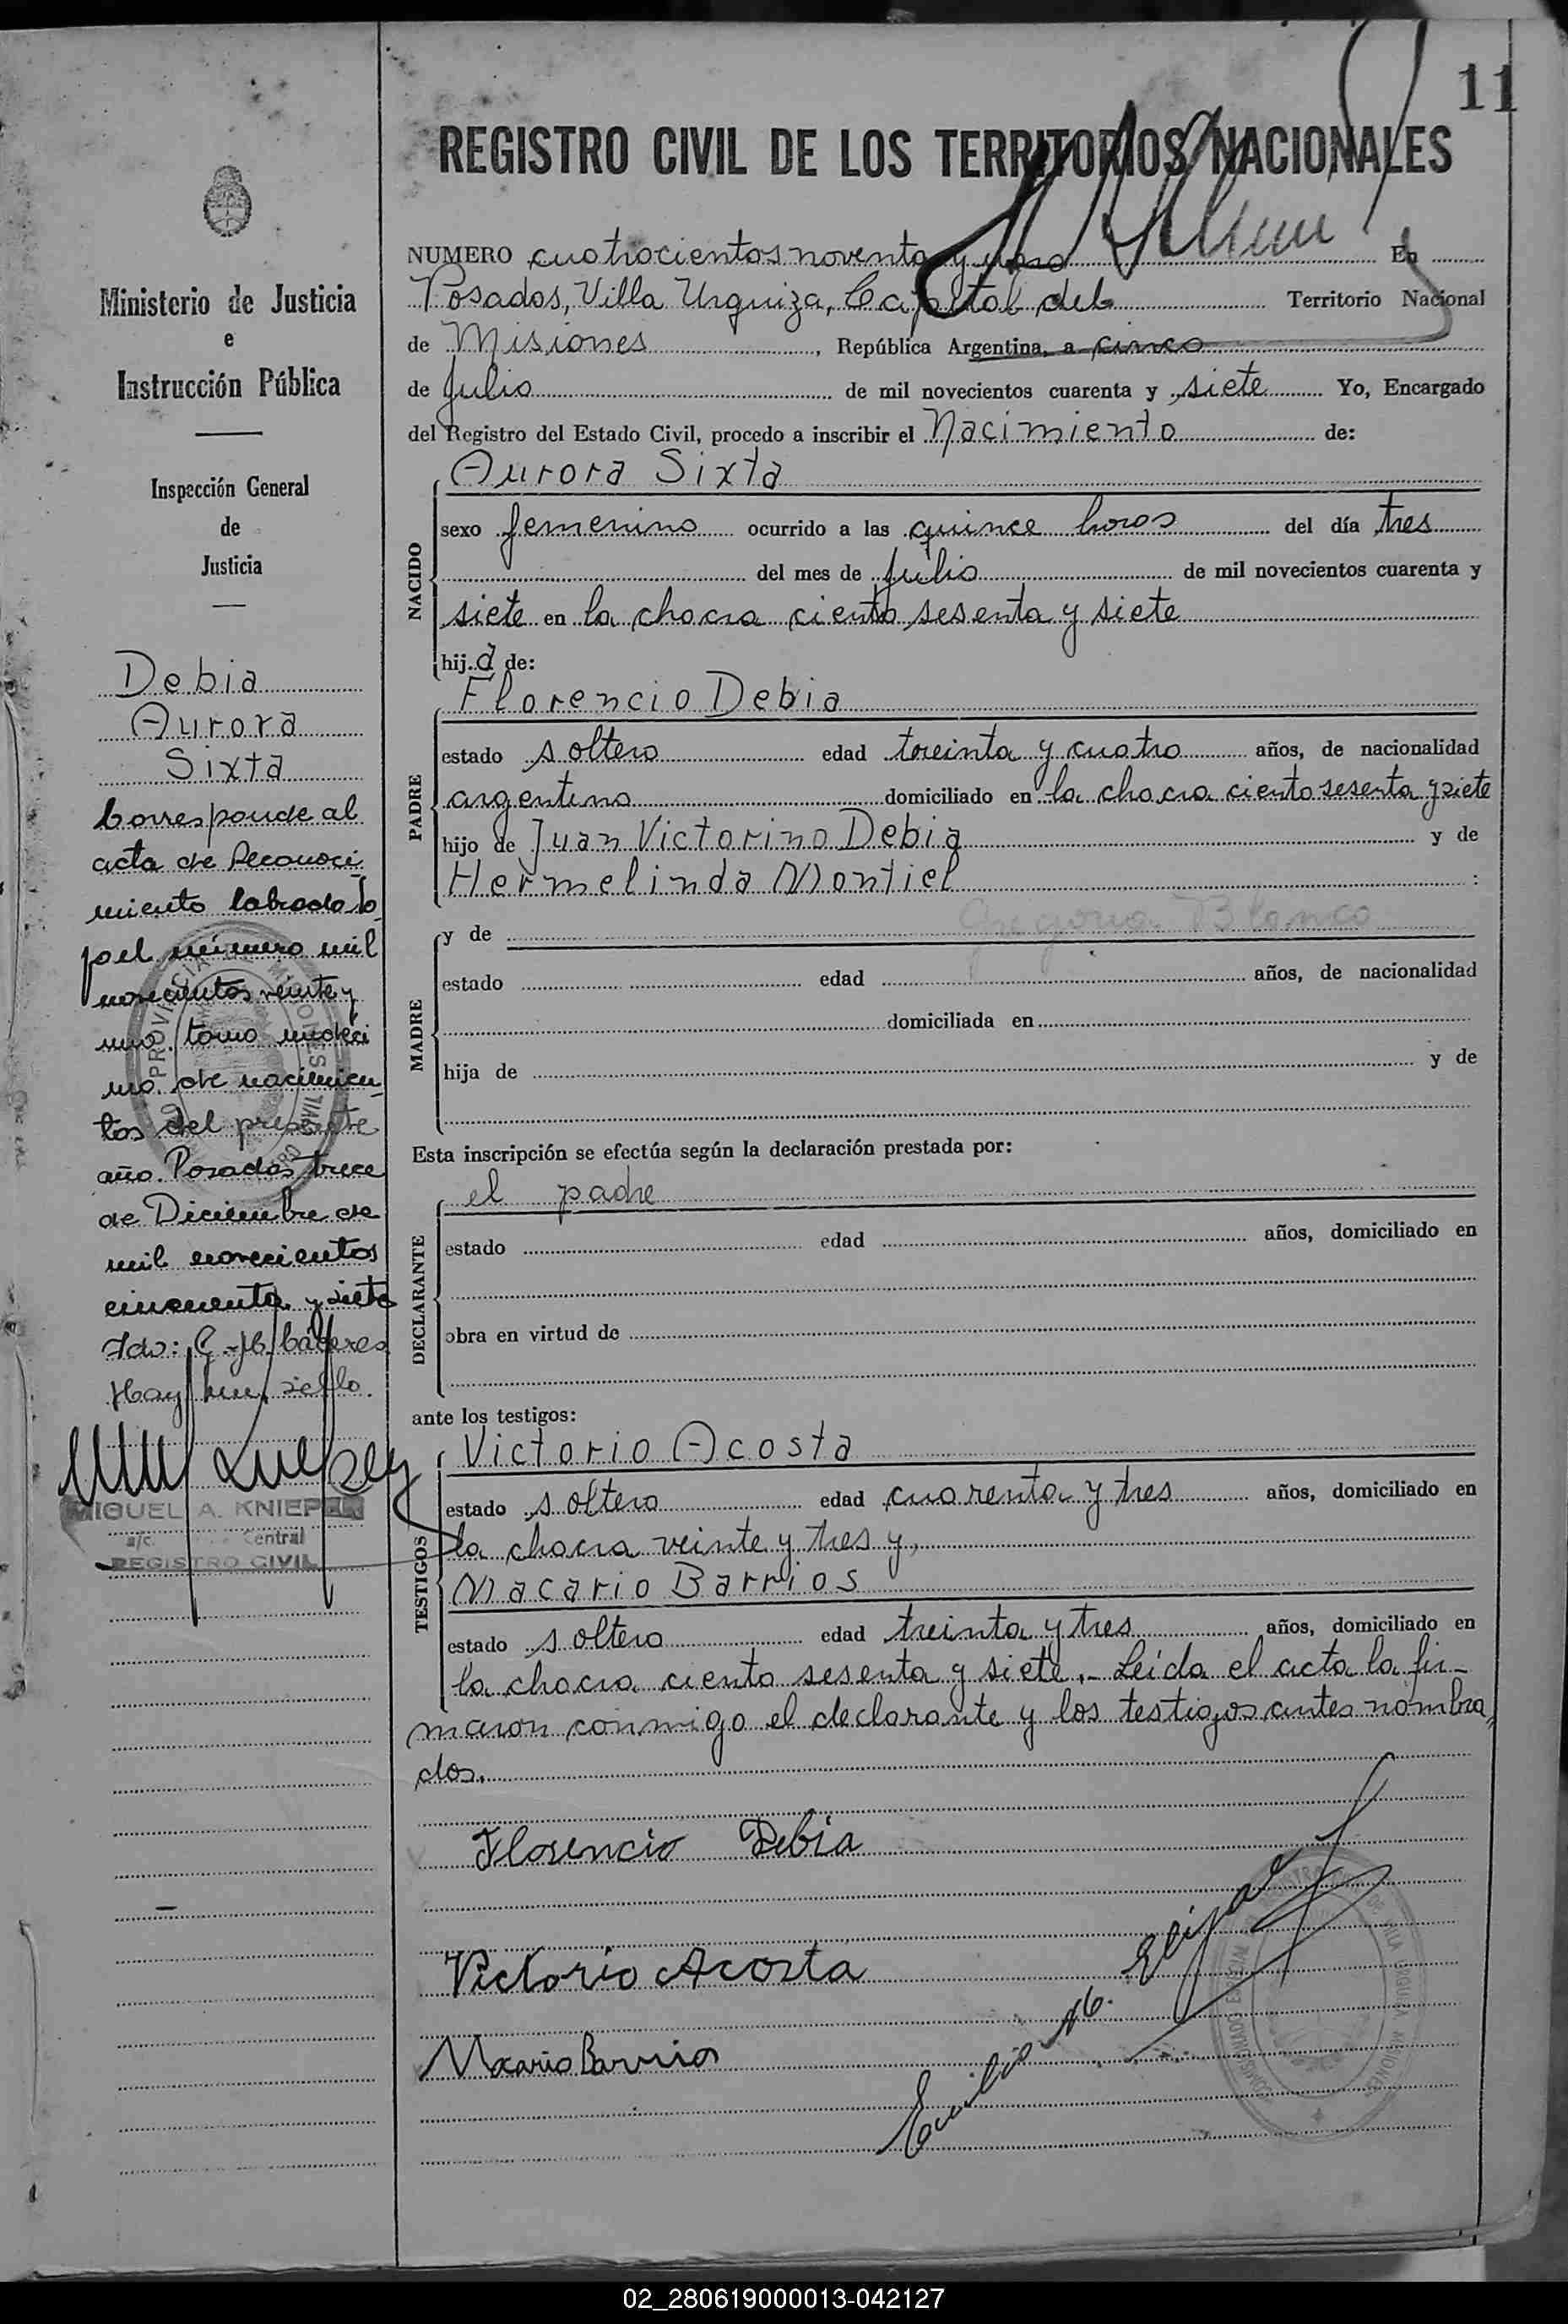 11
REGISTRO CIVIL DE LOS TERRITORIOS NACIONALES
NUMERO cuatrocientos noventa y uno En
Posadas, Villa Urquiza, Capital del Territorio Nacional
de Misiones, República Argentina, a cinco
de Julio de mil novecientos cuarenta y siete Yo, Encargado
del Registro del Estado Civil, procedo a inscribir el Nacimiento de:
NACIDO
Aurora Sixta
sexo femenino ocurrido a las quince horas del día tres
del mes de julio de mil novecientos cuarenta y
siete en la chacra ciento sesenta y siete
hija de:
PADRE
Florencio Debia
estado soltero edad treinta y cuatro años, de nacionalidad
argentino domiciliado en la chacra ciento sesenta y siete
hijo de Juan Victorino Debia y de
Hermelinda Montiel :
MADRE
y de Gregoria Blanco
estado edad años, de nacionalidad
domiciliada en
hija de y de
Esta inscripción se efectúa según la declaración prestada por:
DECLARANTE
el padre
estado edad años, domiciliado en
obra en virtud de
ante los testigos:
TESTIGOS
Victorio Acosta
estado soltero edad cuarenta y tres años, domiciliado en
la chacra veinte y tres y,
Macario Barrios
estado soltero edad treinta y tres años, domiciliado en
la chacra ciento sesenta y siete.- Leída el acta la fir-
maron conmigo el declarante y los testigos antes nombra
dos.
Florencio Debia
Victorio Acosta
Macario Barrios
Ministerio de Justicia
e
Instrucción Pública
Inspección General
de
Justicia
Debia
Aurora
Sixta
Corresponde al
acta de Reconoci-
miento labrada
pel número mil
novecientos veinte y
uno. tomo undeci
mo. de nacimien-
tos del presente
año. Posadas, trece
de Diciembre de
mil novecientos
cincuenta y siete
Fdo: Cáceres
Hay un sello.
MIGUEL A. KNIEPEN
a/c. Central
REGISTRO CIVIL
PROVINCIA MISIONES
02_280619000013-042127